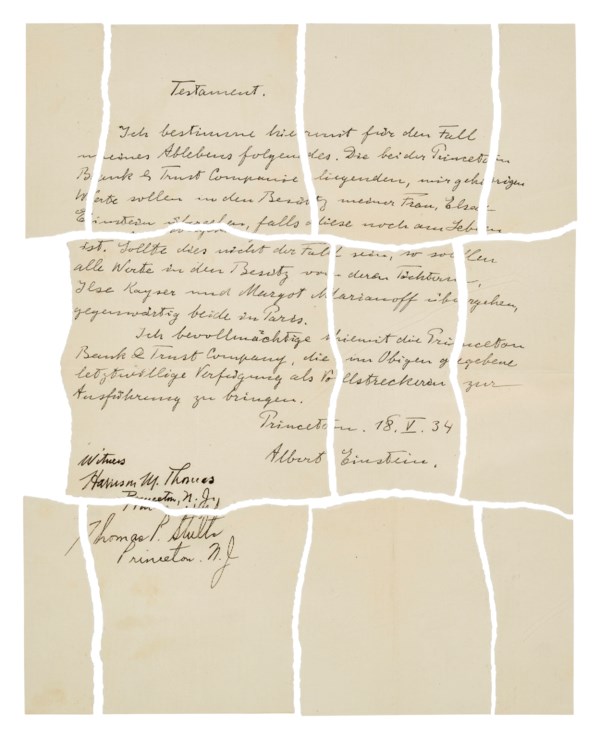 Testament.
Ich bestimme hiermit für den Fall
meines Ablebens folgendes. Die bei der Princeton
Bank & Trust Companie liegenden, mir gehörigen
Werte sollen in den Besitz meiner Frau, Elsa
Einstein übergehen, falls diese noch am Leben
ist. Sollte dies nicht der Fall sein, so sollen
alle Werte in den Besitz von deren Töchtern,
Ilse Kayser und Margot Marianoff übergehen,
gegenwärtig beide in Paris.
Ich bevollmächtige hiemit die Princeton
Bank & Trust Company, die im Obigen gegebene
letztwillige Verfügung als Vollstreckerin zur
Ausführung zu bringen.
Princeton. 18. V. 34
Albert Einstein.
Witness
Harrison M. Thomas
Princeton, N.J.
Thomas P. Stults
Princeton. N.J